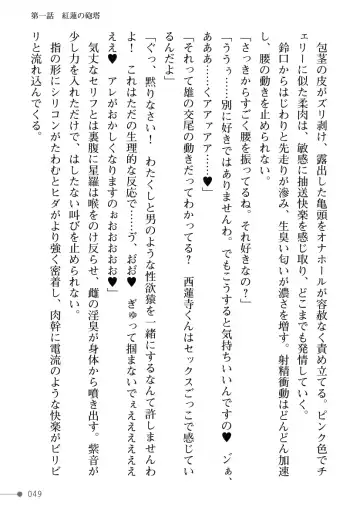 第一話　紅蓮の砲塔
包茎の皮がズリ剥け、露出した亀頭をオナホールが容赦なく責め立てる。ピンク色でチ
ェリーに似た柔肉は、敏感に抽送快楽を感じ取り、どこまでも発情していく。
鈴口からはじわりと先走りが滲み、生臭い匂いが濃さを増す。射精衝動はどんどん加速
し、腰の動きを止められない。
「さっきからすごく腰を振ってるね。それ好きなの？」
「ううぅ……別に好きではありませんわ。でもこうすると気持ちいいんです♥　ぞぁ、
あああ……くアアァアア……♥」
「それって雄の交尾の動きだってわかってる？　西蓮寺くんはセックスごっこで感じてい
るんだよ」
「ぐっ、黙りなさい！　わたくしと男のような性欲猿を一緒にするなんて許しませんわ
よ！　これはただの生理的な反応で……う、おお♥　ぎゅって掴まないでぇえええええ
ええ♥　アレがおかしくなりますのぉおおおおお♥」
気丈なセリフとは裏腹に星羅は喉をのけ反らせ、雌の淫臭が身体から噴き出す。紫音が
少し力を入れただけで、はしたない叫びを止められなくなる。
指の形にシリコンがたわむとヒダがより強く密着し、肉幹に電流のような快楽がビリビ
リと流れ込んでくる。
049